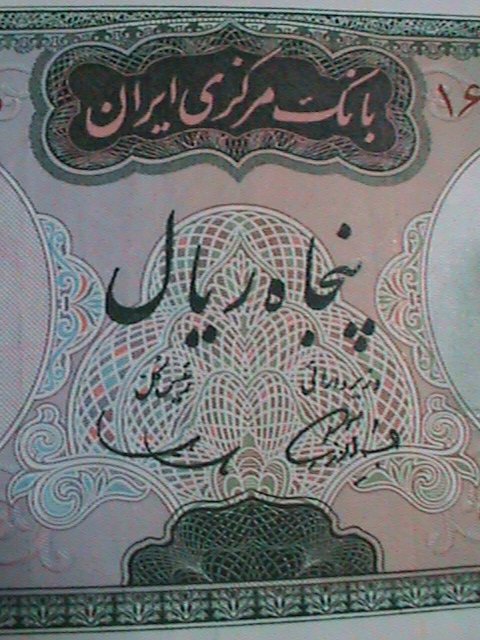 بانک مرکزی ایران
۱۶
پنجاه ریال
وزیر دارائی
رئیس کل